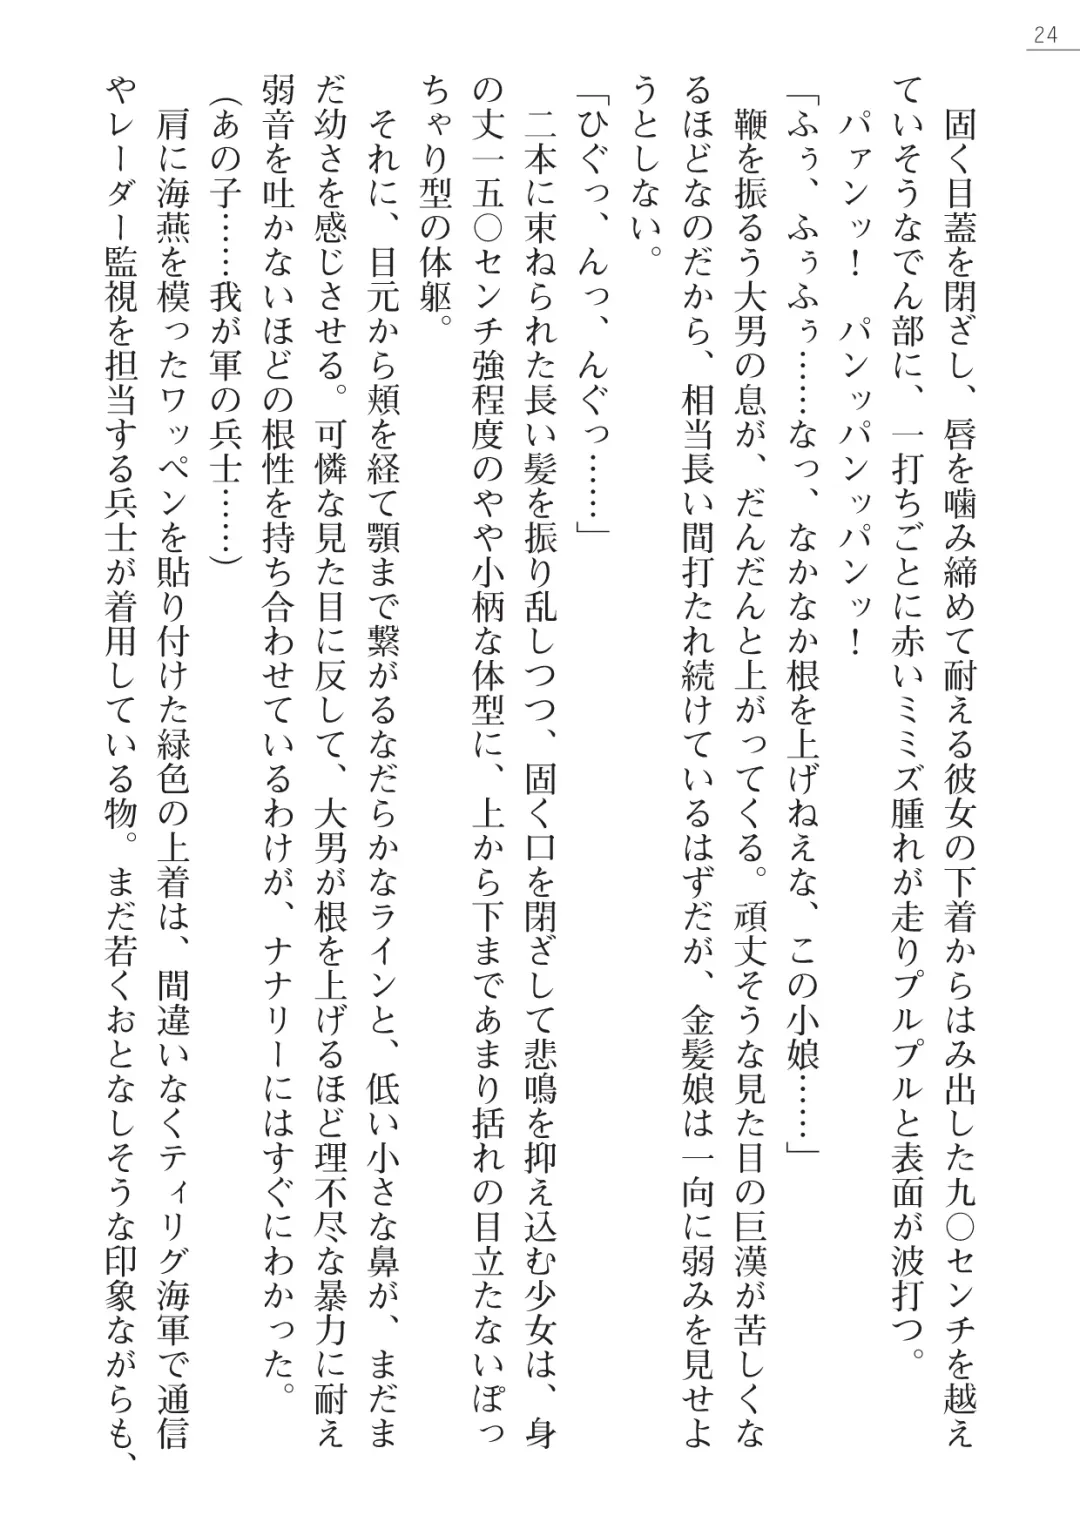 24
固く目蓋を閉ざし、唇を噛み締めて耐える彼女の下着からはみ出した九〇センチを越え
ていそうなでん部に、一打ちごとに赤いミミズ腫れが走りプルプルと表面が波打つ。
パァンッ！　パンッパンッパンッ！
「ふぅ、ふぅふぅ……なっ、なかなか根を上げねえな、この小娘……」
鞭を振るう大男の息が、だんだんと上がってくる。頑丈そうな見た目の巨漢が苦しくな
るほどなのだから、相当長い間打たれ続けているはずだが、金髪娘は一向に弱みを見せよ
うとしない。
「ひぐっ、んっ、んぐっ……」
二本に束ねられた長い髪を振り乱しつつ、固く口を閉ざして悲鳴を抑え込む少女は、身
の丈一五〇センチ強程度のやや小柄な体型に、上から下まであまり括れの目立たないぽっ
ちゃり型の体躯。
それに、目元から頬を経て顎まで繋がるなだらかなラインと、低い小さな鼻が、まだま
だ幼さを感じさせる。可憐な見た目に反して、大男が根を上げるほど理不尽な暴力に耐え
弱音を吐かないほどの根性を持ち合わせているわけが、ナナリーにはすぐにわかった。
（あの子……我が軍の兵士……）
肩に海燕を模ったワッペンを貼り付けた緑色の上着は、間違いなくティリグ海軍で通信
やレーダー監視を担当する兵士が着用している物。まだ若くおとなしそうな印象ながらも、